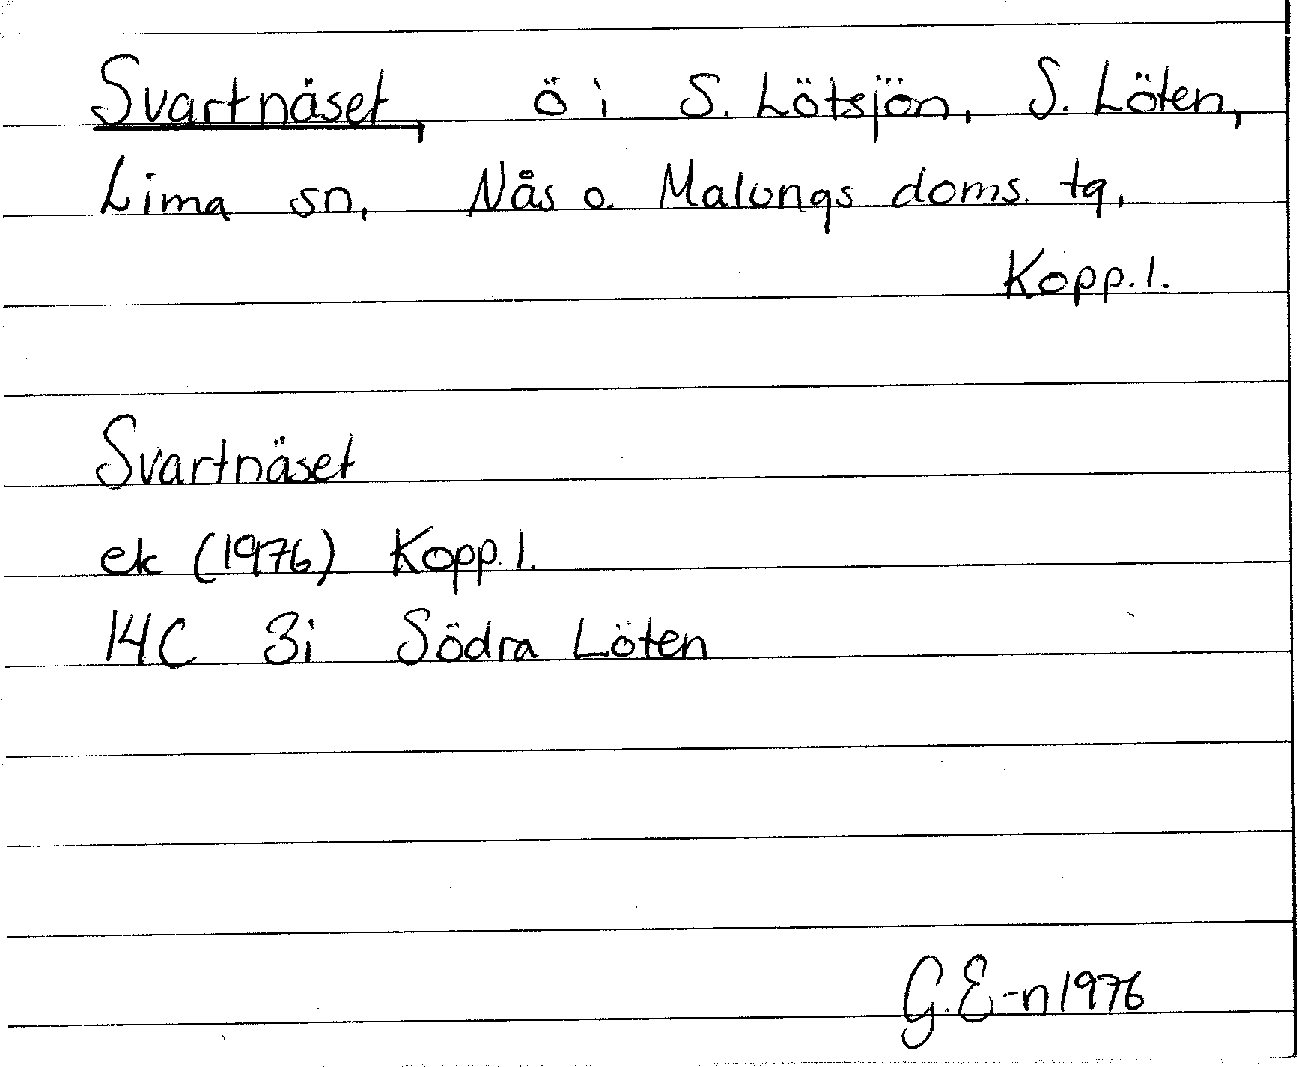 Svartnäset, ö i S. Lötsjön, S. Löten,
Lima sn, Nås o. Malungs doms. tg,
Kopp. l.
Svartnäset
ek (1976) Kopp. l.
14C 3i Södra Löten
G. E-n 1976